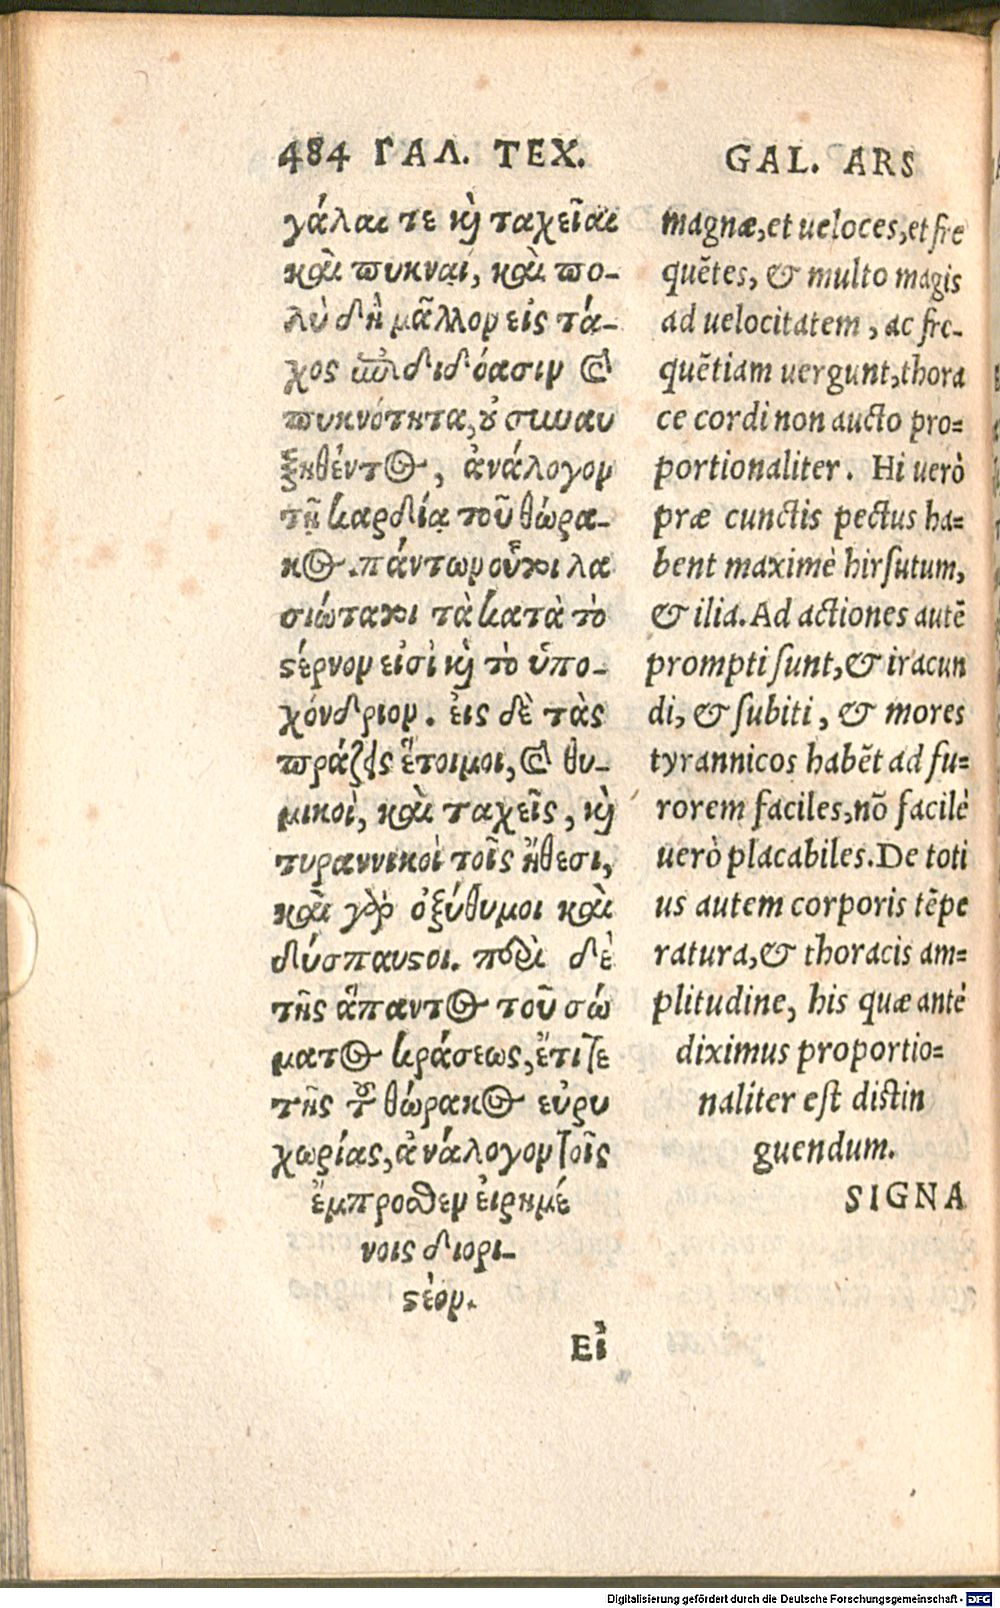 484 ΓΑΛ. ΤΕΧ.
γάλαι τε καὶ ταχεῖαι
καὶ πυκναί, καὶ πο-
λὺ δὴ μᾶλλον εἰς τά-
χος ἐπιδιδόασιν καὶ
πυκνότητα, οὐ συναυ
ξηθέντος, ἀνάλογον
τῇ καρδίᾳ τοῦ θώρα-
κος. πάντων οὗτοι λα
σιώτατοι τὰ κατὰ τὸ
στέρνον εἰσὶ καὶ τὸ ὑπο-
χόνδριον. εἰς δὲ τὰς
πράξεις ἕτοιμοι, καὶ θυ-
μικοὶ, καὶ ταχεῖς, καὶ
τυραννικοὶ τοῖς ἤθεσι,
καὶ γὰρ ὀξύθυμοι καὶ
δύσπαυστοι. περὶ δὲ
τῆς ἅπαντος τοῦ σώ
ματος κράσεως, ἔτι τε
τῆς τοῦ θώρακος εὐρυ
χωρίας, ἀνάλογον τοῖς
ἔμπροσθεν εἰρημέ
νοις διορι-
στέον.
Εἰ
GAL. ARS
magnæ, et ueloces, et fre
quētes, & multo magis
ad uelocitatem, ac fre-
quētiam uergunt, thora
ce cordi non aucto pro=
portionaliter. Hi uerò
præ cunctis pectus ha=
bent maximè hirsutum,
& ilia. Ad actiones autē
prompti sunt, & iracun
di, & subiti, & mores
tyrannicos habēt ad fu=
rorem faciles, nō facilè
uerò placabiles. De toti
us autem corporis tēpe
ratura, & thoracis am=
plitudine, his quæ antè
diximus proportio=
naliter est distin
guendum.
SIGNA
Digitalisierung gefördert durch die Deutsche Forschungsgemeinschaft - DFG